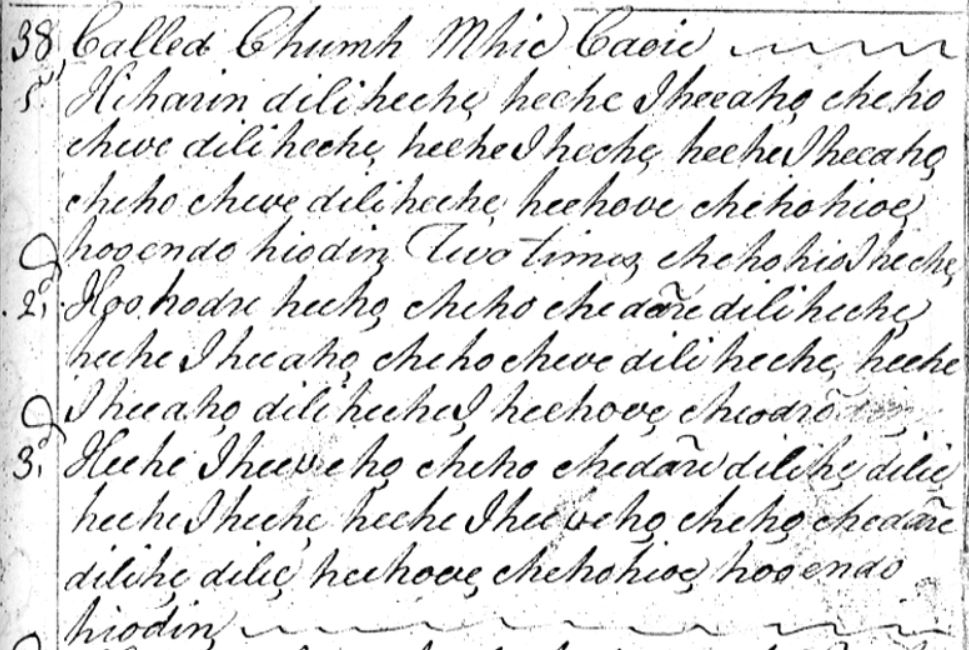 38, Called Chumh Mhic Caoie
1, Hiharin dili heche, heche I heeaho, cheho
cheve dili heche, heehe I heche, heehe I heeaho,
cheho cheve dili heehe, heehove chehohioe,
hooendo hiodin, Two times, chehohio I heche,
2d, Hoo hodre heeho, cheho chedãre dili heche,
heehe I heeaho, cheho cheve dili heche, heehe
I heeaho, dili heehe I heehove, cheodrõ
3d, Heehe I heeveho, cheho chedãre dilihe, dilie,
heehe I heehe, heehe I heeveho, cheho, chedãre
dilihe, dilie, heehove, chehohioe, hooendo
hiodin,